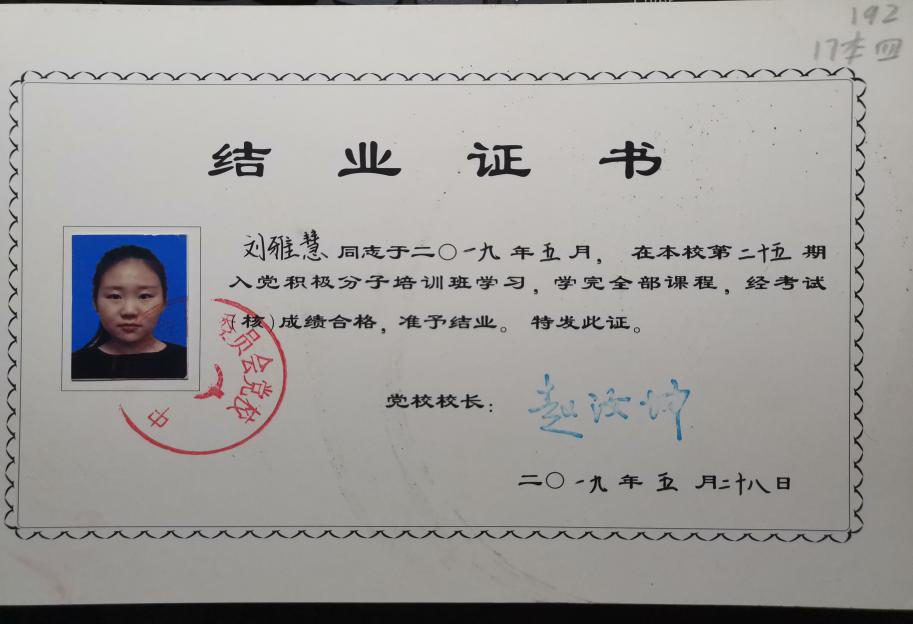 192
17本四
结业证书
刘雅慧同志于二〇一九年五月，在本校第二十五期
入党积极分子培训班学习，学完全部课程，经考试
(核)成绩合格，准予结业。特发此证。
委员会党校
中
党校校长：赵汝坤
二〇一九年五月二十八日